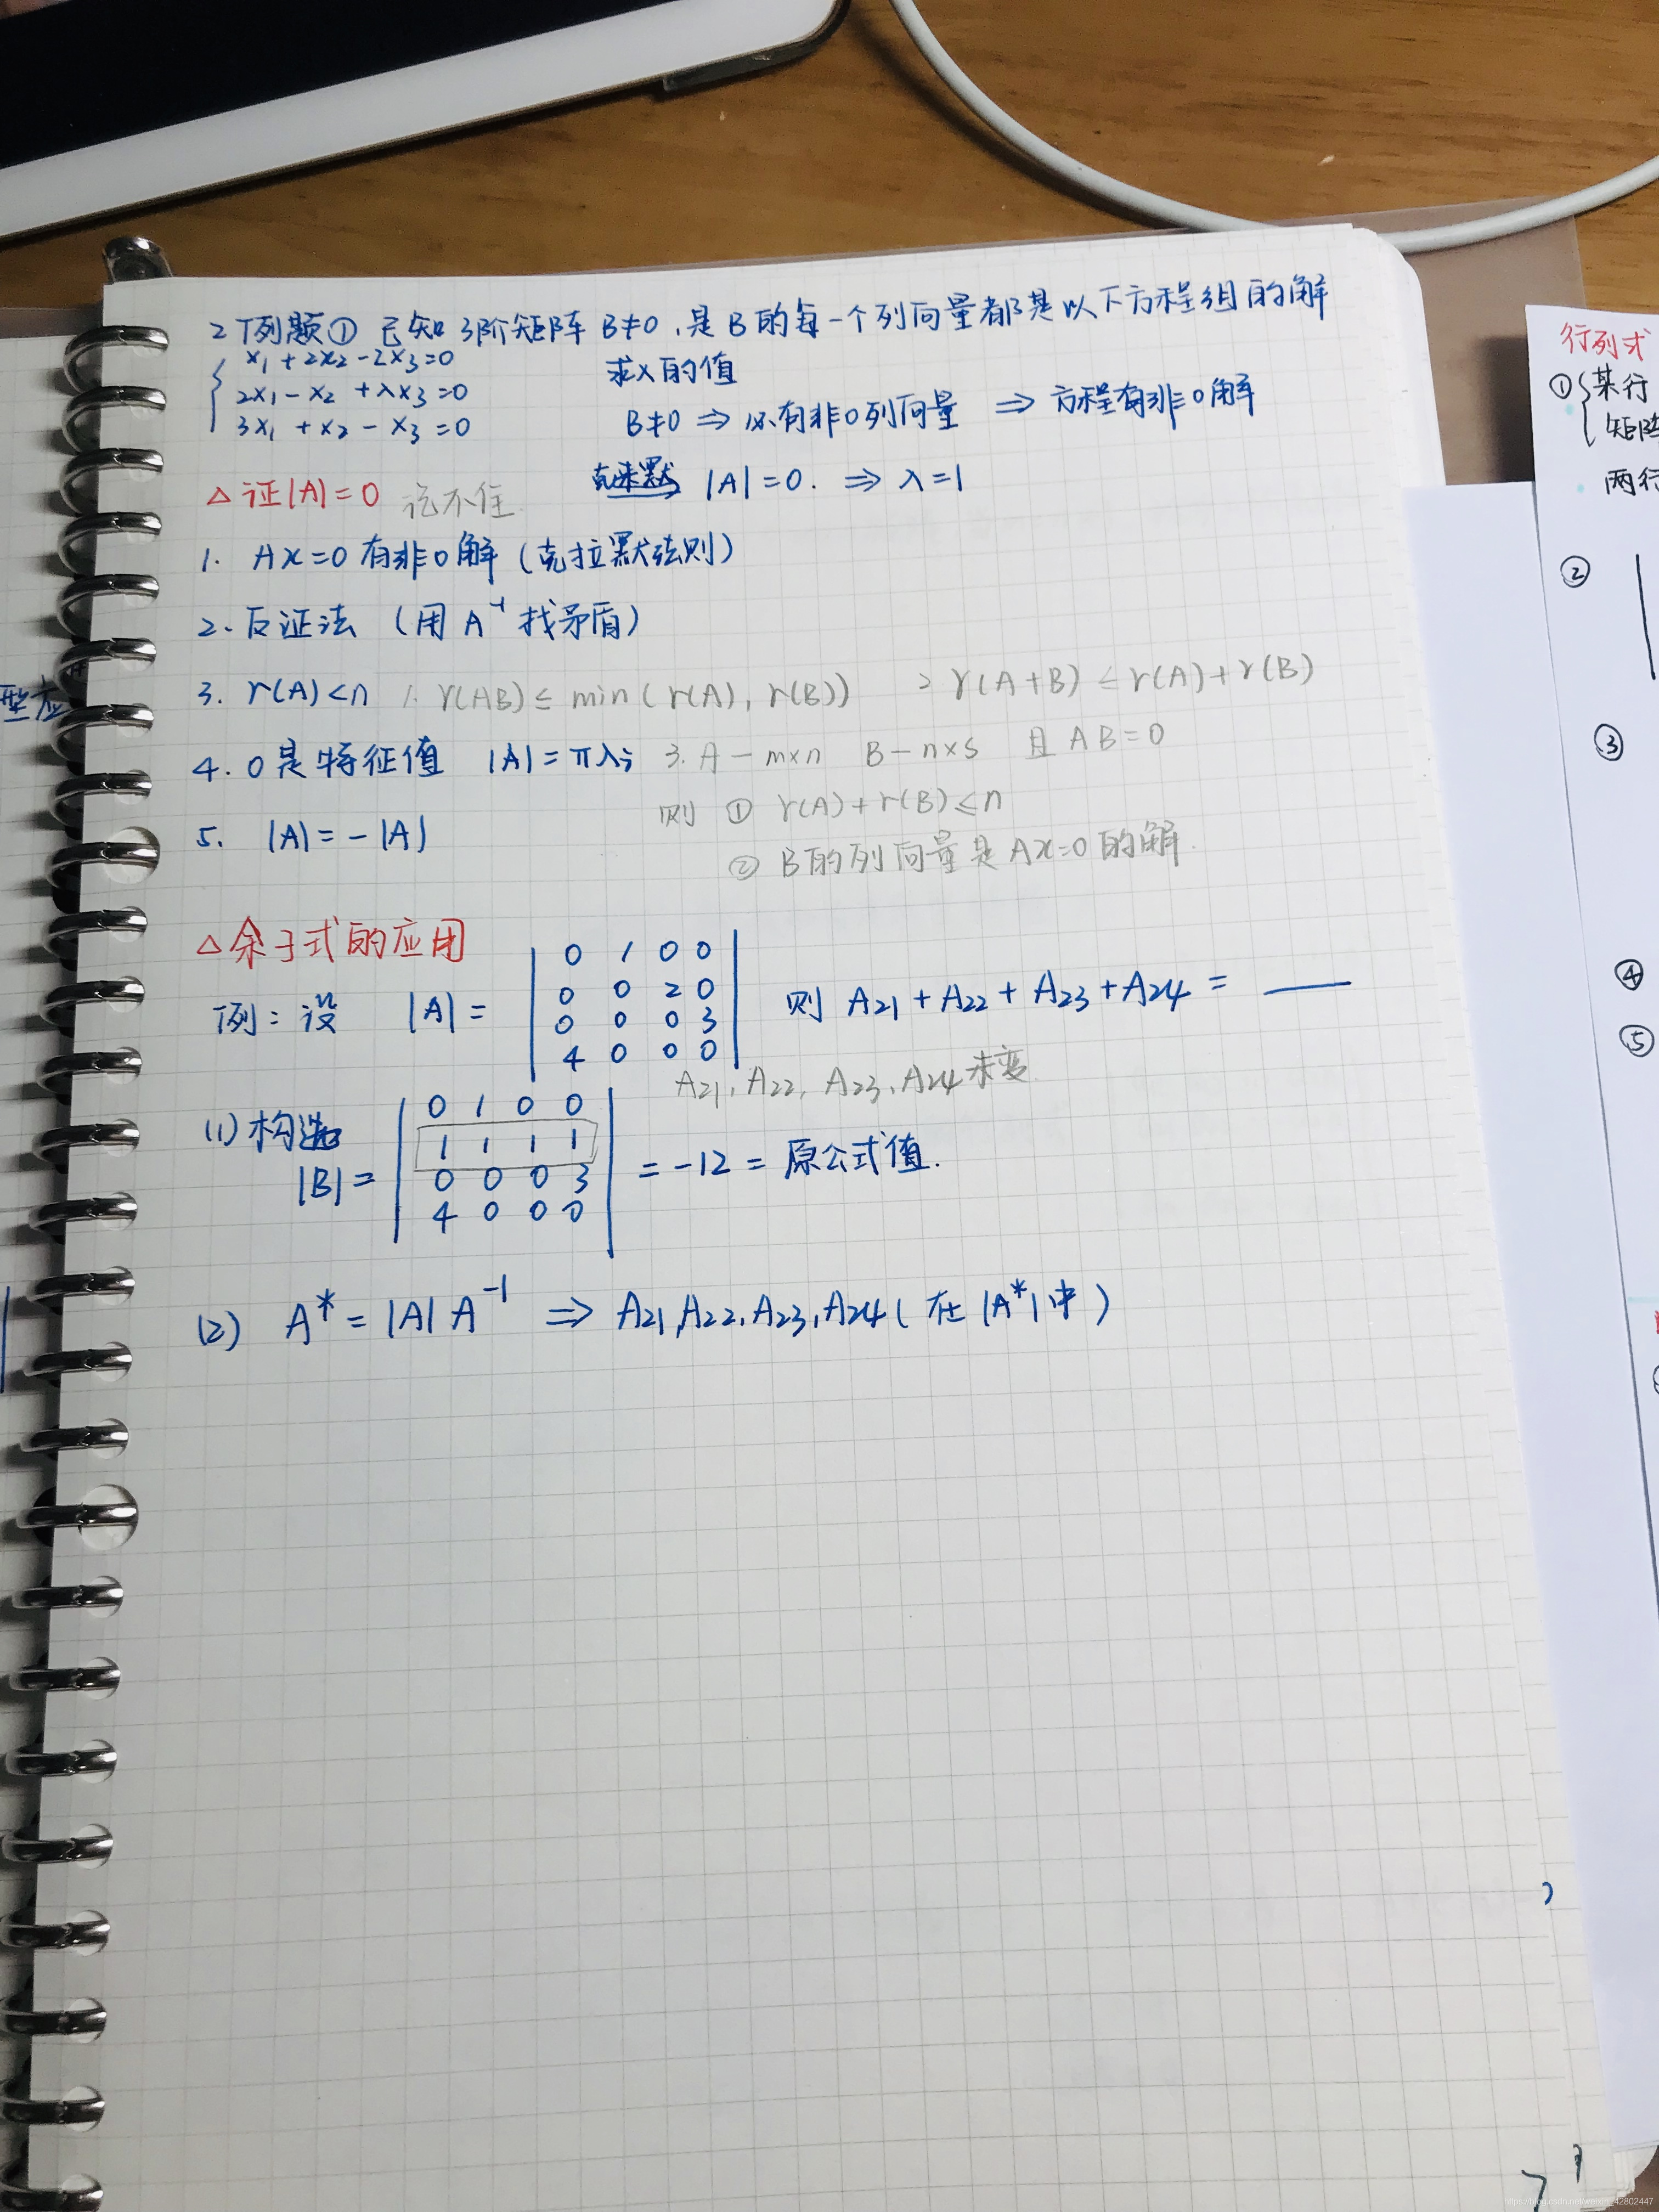 2 例题① 已知 3阶矩阵 B≠0,是B的每一个列向量都是以下方程组的解
x₁+2x₂-2x₃=0
2x₁-x₂+λx₃=0 求λ的值
3x₁+x₂-x₃=0 B≠0 ⇒ 必有非0列向量 ⇒ 方程有非0解
克莱默 |A|=0. ⇒ λ=1
△证|A|=0 记不住
1. Ax=0有非0解(克拉默法则)
2. 反证法 (用A⁻¹找矛盾)
3. r(A)<n 1. r(AB)≤min(r(A), r(B)) 2 r(A+B)≤r(A)+r(B)
4. 0是特征值 |A|=πλi 3. A-m×n B-n×s 且AB=0
则 ① r(A)+r(B)≤n
5. |A|=-|A|
② B的列向量是Ax=0的解.
△余子式的应用
0 1 0 0
0 0 2 0
例:设 |A|= 则 A₂₁+A₂₂+A₂₃+A₂₄=
0 0 0 3
4 0 0 0
A₂₁,A₂₂,A₂₃,A₂₄未变
(1)构造
0 1 0 0
1 1 1 1
|B|= =-12=原公式值.
0 0 0 3
4 0 0 0
(2) A*=|A|A⁻¹ ⇒ A₂₁,A₂₂,A₂₃,A₂₄(在|A*|中)
行列式
①某行
矩阵
两行
②
③
④
⑤